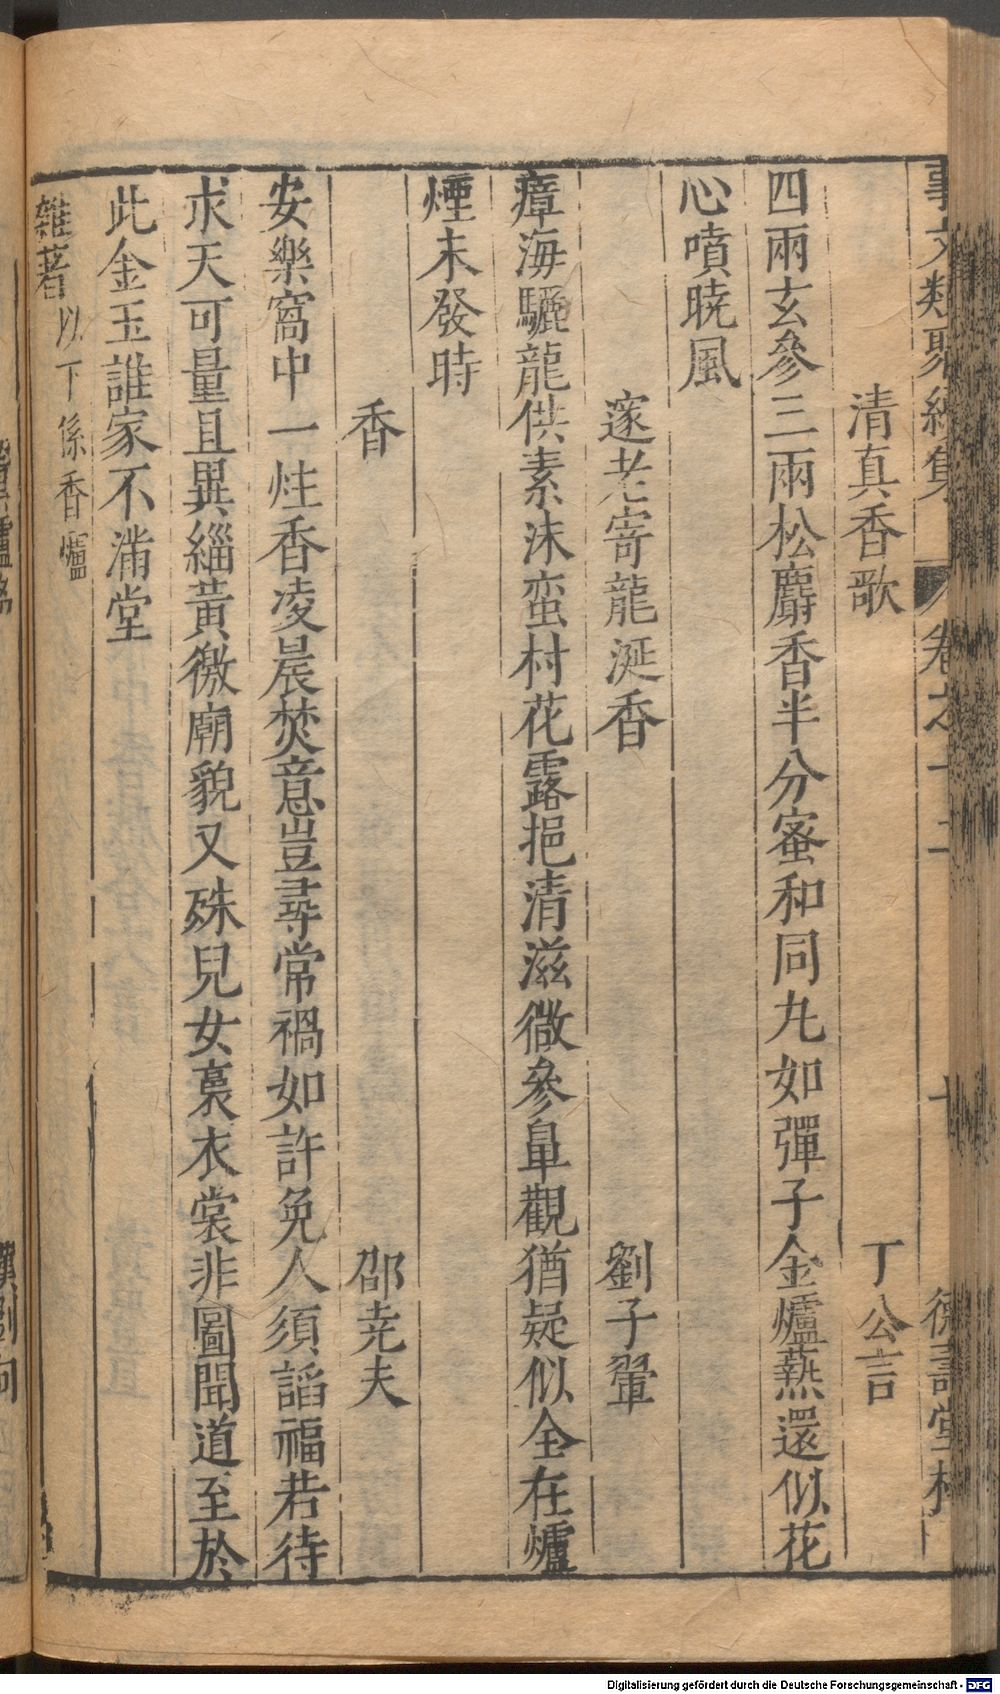 事文類聚續集 卷之十二 十 德壽堂梓
清真香歌 丁公言
四兩玄參三兩松麝香半分蜜和同丸如彈子金爐爇還似花
心噴曉風
邃老寄龍涎香 劉子翬
瘴海驪龍供素沫蛮村花露挹清滋微參鼻觀猶疑似全在爐
煙未發時
香 邵尭夫
安樂窩中一炷香凌晨焚意豈尋常禍如許免人須諂福若待
求天可量且異緇黃徼廟貌又殊兒女裛衣裳非圖聞道至於
此金玉誰家不滿堂
雜著以下係香爐
Digitalisierung gefördert durch die Deutsche Forschungsgemeinschaft - DFG